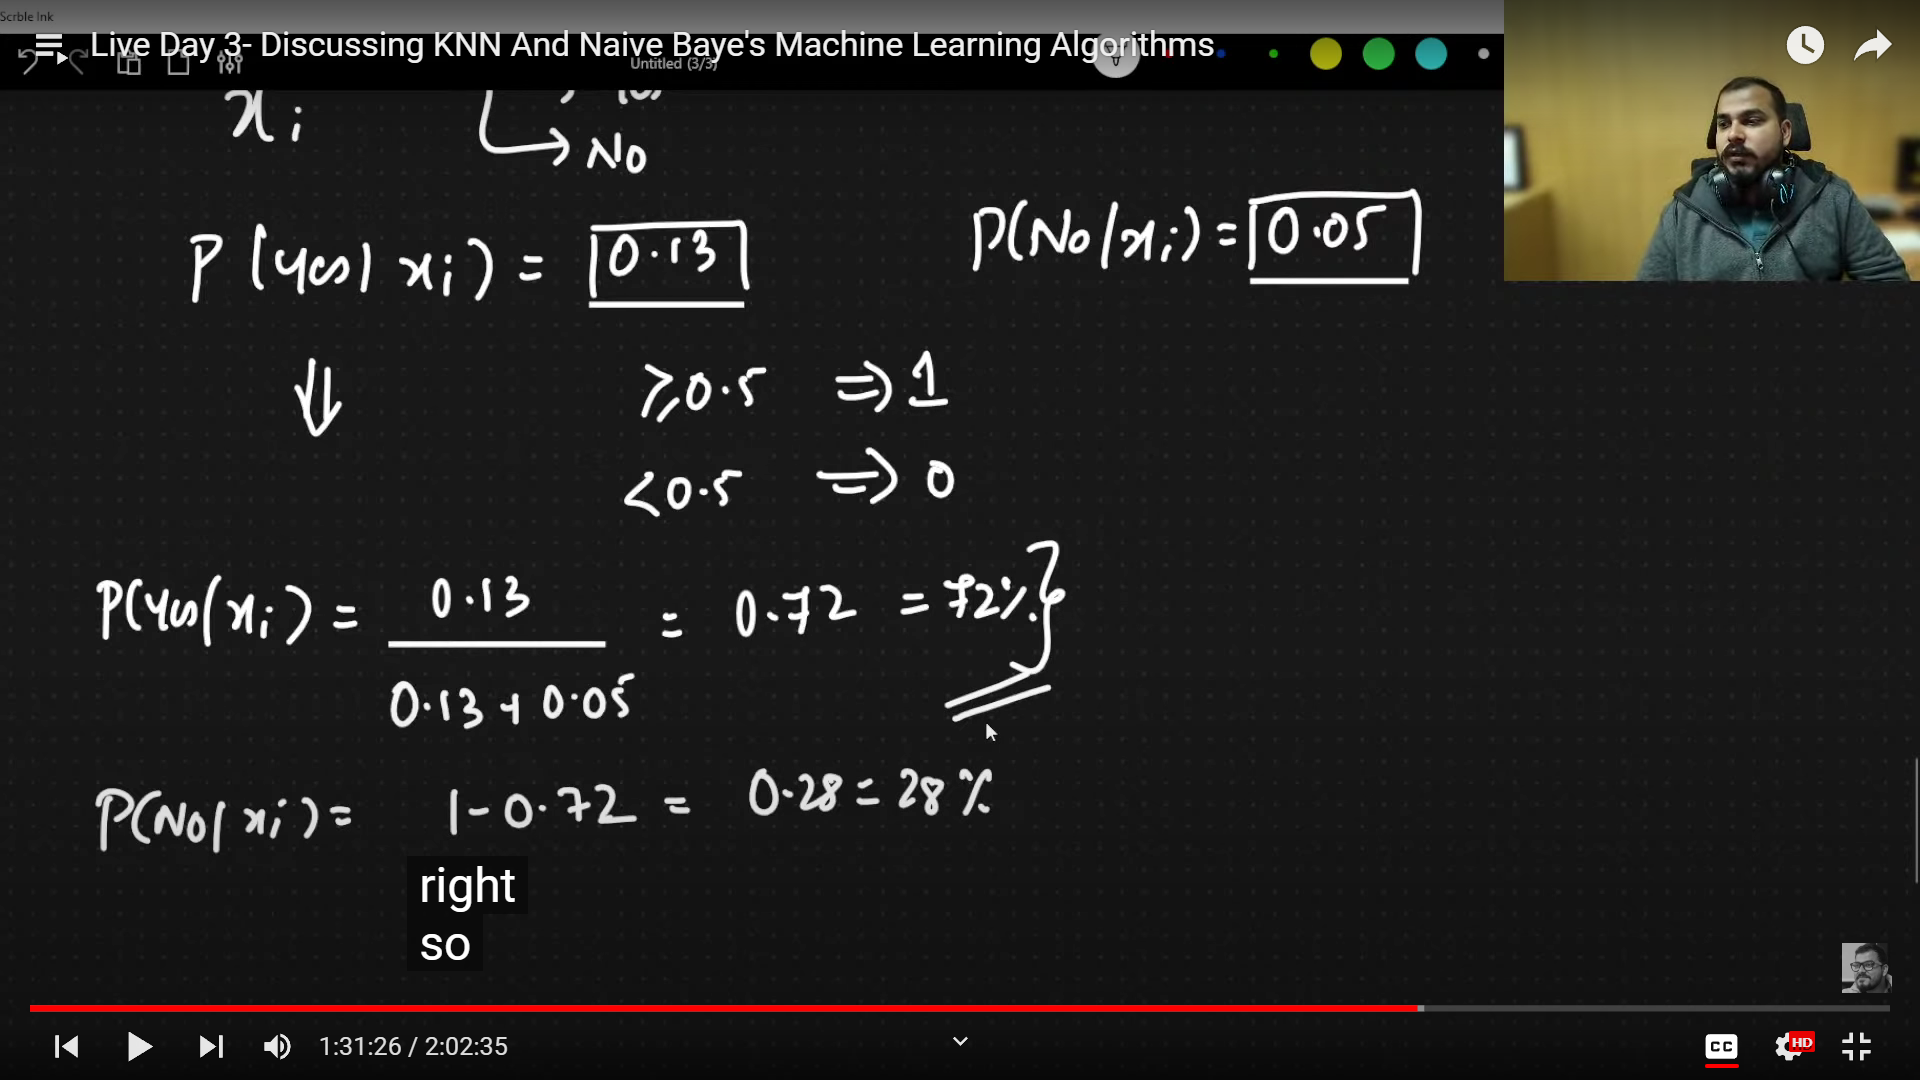 Scrble Ink
Live Day 3- Discussing KNN And Naive Baye's Machine Learning Algorithms
Untitled (3/3)
xi
No
P(Yes| xi) = 0.13
P(No/xi) = 0.05
≥0.5 => 1
<0.5 => 0
P(Yes/xi) = 0.13 / 0.13 + 0.05 = 0.72 = 72%
P(No| xi) = 1-0.72 = 0.28 = 28%
right
so
1:31:26 / 2:02:35
CC
HD